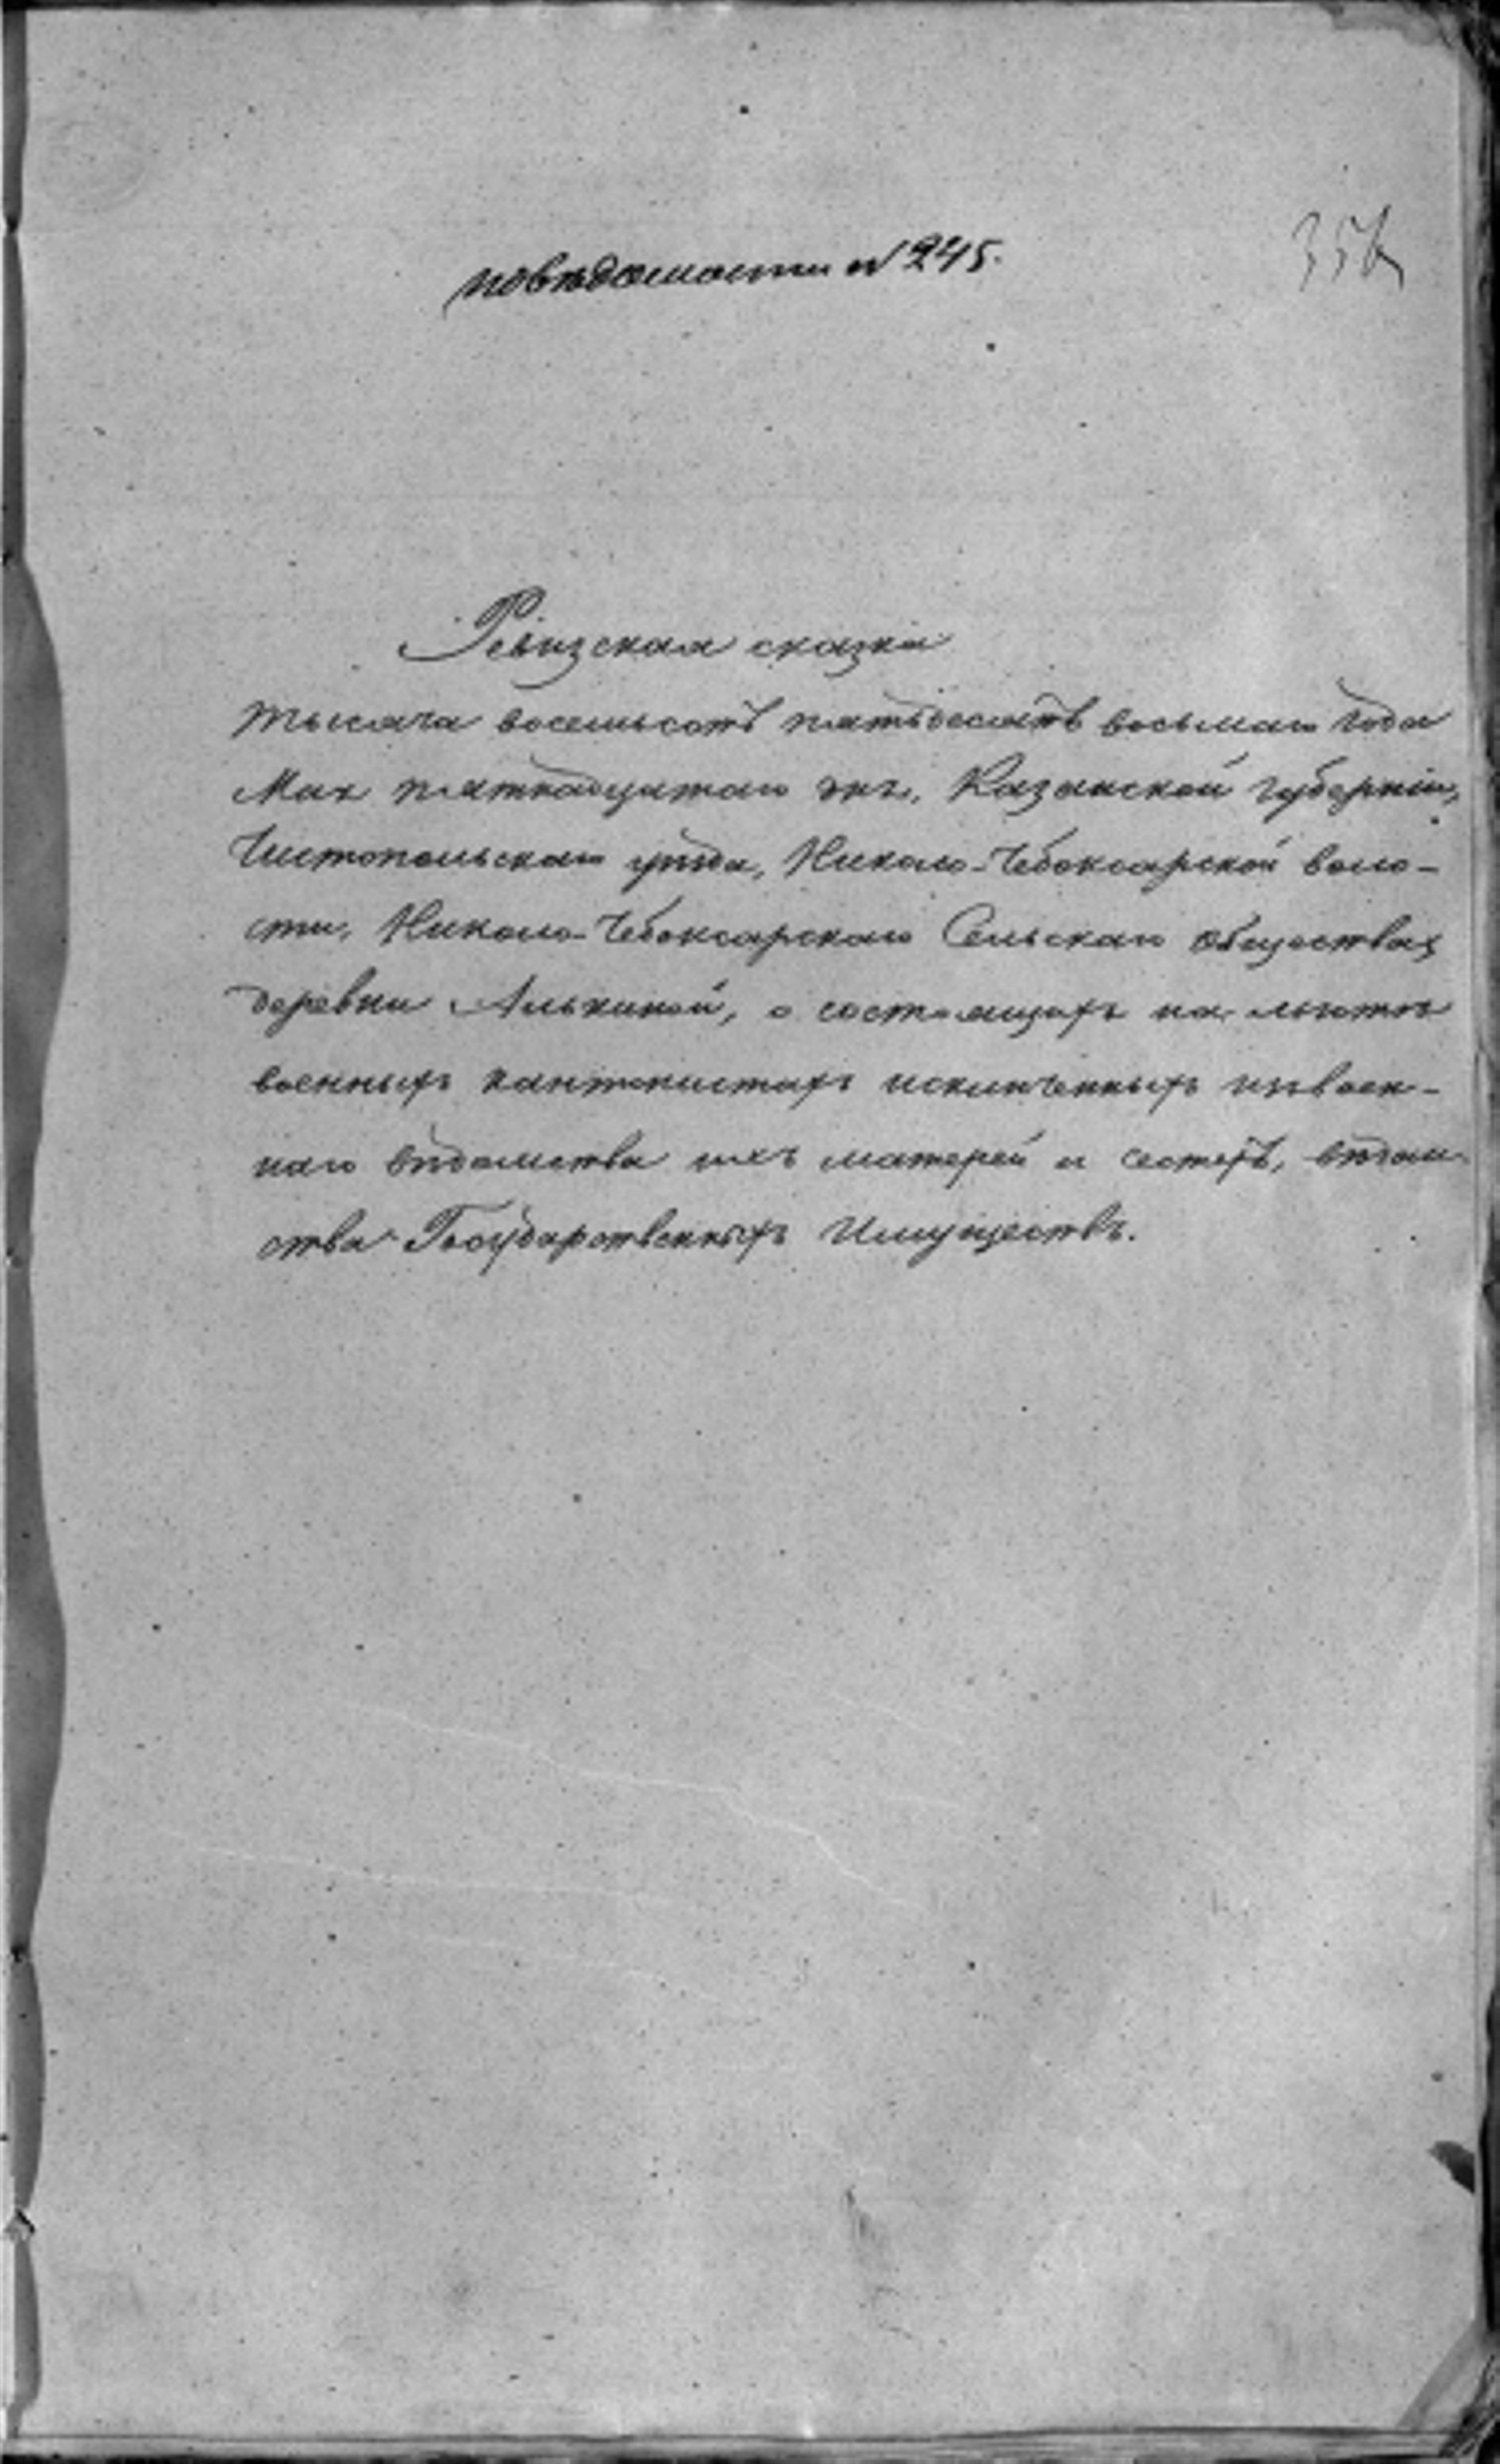 по вѣдомости № 245.
356
Ревизская сказка
тысяча восемьсотъ пятьдесятъ восьмаго года
Мая пятнадцатаго дня, Казанской губерніи,
Чистопольскаго уѣзда, Николо-Чебоксарской воло-
сти, Николо-Чебоксарскаго Сельскаго общества,
деревни Алькиной, о состоящихъ на льготѣ
военныхъ кантонистахъ исключенныхъ изъ воен-
наго вѣдомства ихъ матерей и сестеръ, вѣдом-
ства Государственныхъ Имуществъ.